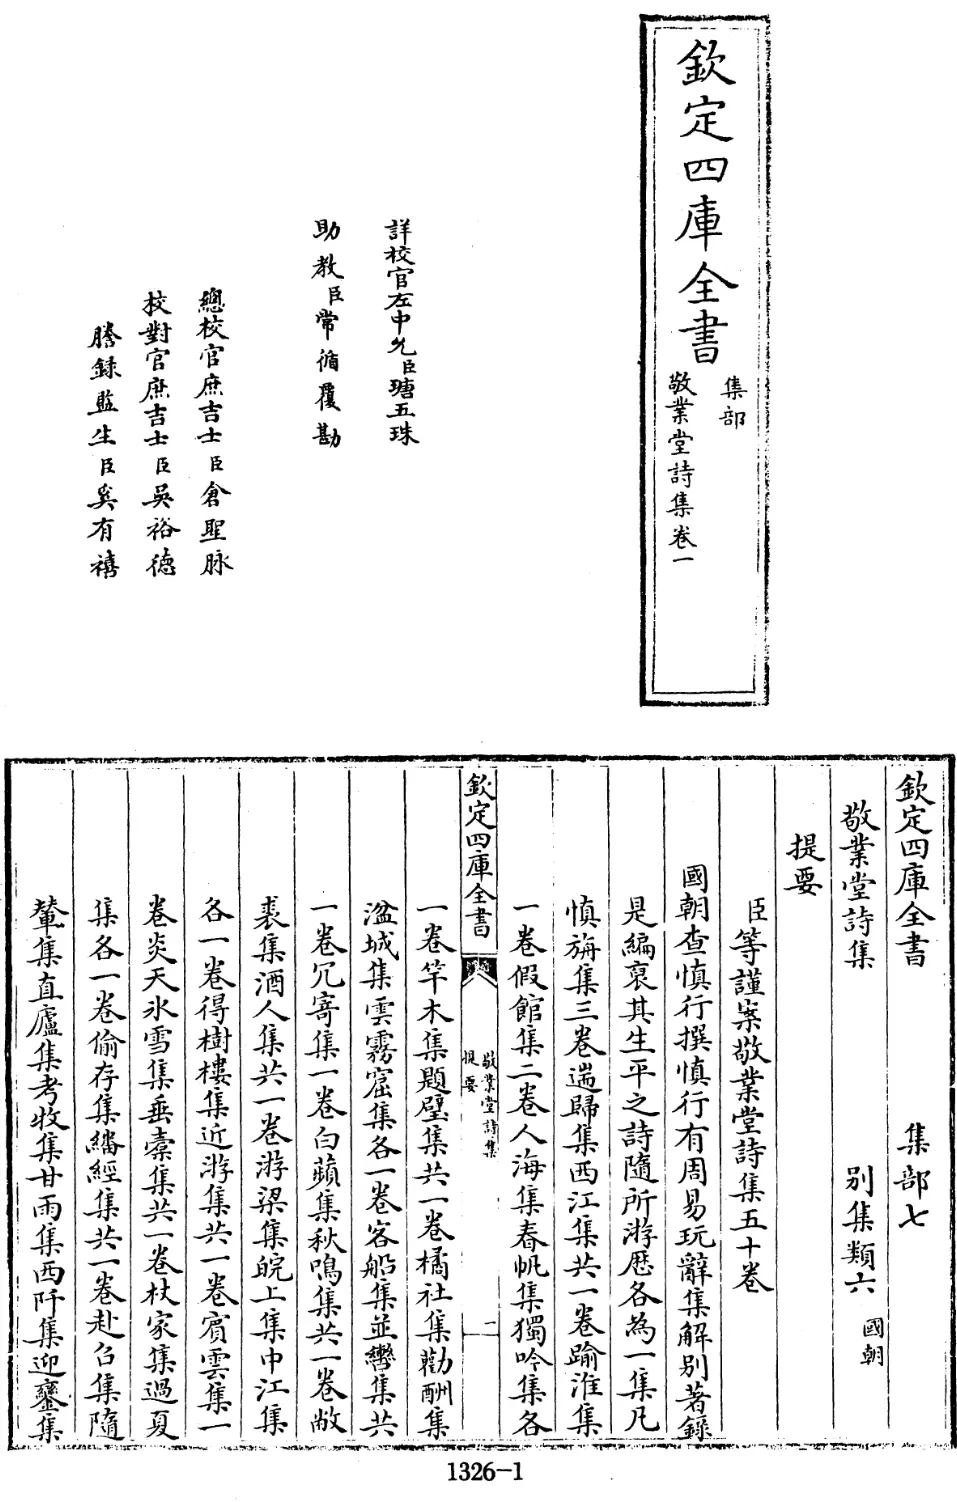 欽定四庫全書
集部
敬業堂詩集卷一
詳校官左中允臣瑭五珠
助教臣常循覆勘
總校官庶吉士臣倉聖脉
校對官庶吉士臣吳裕德
謄録監生臣奚有禧
欽定四庫全書 集部七
敬業堂詩集 別集類六 國朝
提要
臣等謹案敬業堂詩集五十卷
國朝查慎行撰慎行有周易玩辭集解別著錄
是編裒其生平之詩隨所游歷各為一集凡
慎旃集三卷遄歸集西江集共一卷踰淮集
一卷假館集二卷人海集春帆集獨吟集各
欽定四庫全書
敬業堂詩集
提要
一
一卷竿木集題壁集共一卷橘社集勸酬集
湓城集雲霧窟集各一卷客船集並轡集共
一卷冗寄集一卷白蘋集秋鳴集共一卷敝
裘集酒人集共一卷游梁集皖上集中江集
各一卷得樹樓集近游集共一卷賓雲集一
卷炎天氷雪集垂橐集共一卷杖家集過夏
集各一卷偷存集繙經集共一卷赴召集隨
輦集直廬集考牧集甘雨集西阡集迎鑾集
1326-1